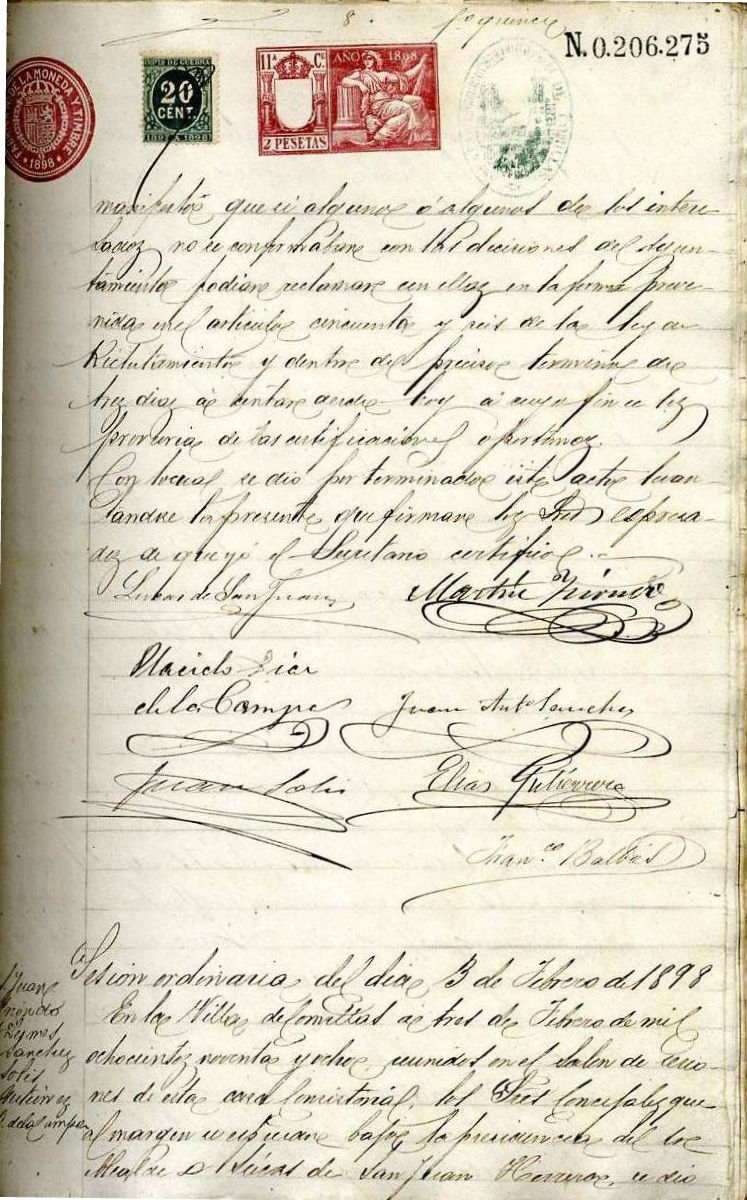 8. fº quince
N. 0.206.275
FAB DE LA MONEDA Y TIMBRE
1898
IMPTO DE GUERRA
20
CENT.
1897 A 1898
11ª C.
AÑO 1898
2 PESETAS
manifestó que si alguno ó algunos de los intere
sados no se conformaban con las decisiones del Ayun-
tamiento podian reclamar en la forma preve
nida en el articulo cincuenta y seis de la ley de
Reclutamiento y dentro del preciso termino de
tres dias á contar desde hoy á cuyo fin se les
proveria de las certificaciones oportunas.
Con lo cual se dió por terminado este acto levan
tandose la presente que firman los Sres espresa-
dos de que yó el Secretario certifico.
Lucas de San Juan
Martin
Placido Diaz
de la Campa
Juan Antº Sanchez
Juan Solis
Elias Gutiérrez
Franco Balbás
Sesión ordinaria del dia 3 de Febrero de 1898
En la Villa de Comillas á tres de Febrero de mil
ochocientos noventa y ocho, reunidos en el Salon de sesio
nes de esta casa Consistorial, los Sres Concejales que
al margen se espresan bajo la presidencia del Sr
Alcalde D Lúcas de San Juan Herreros, se dió
Juan
Sanchez
Solis
Gutierrez
D. de la Campa